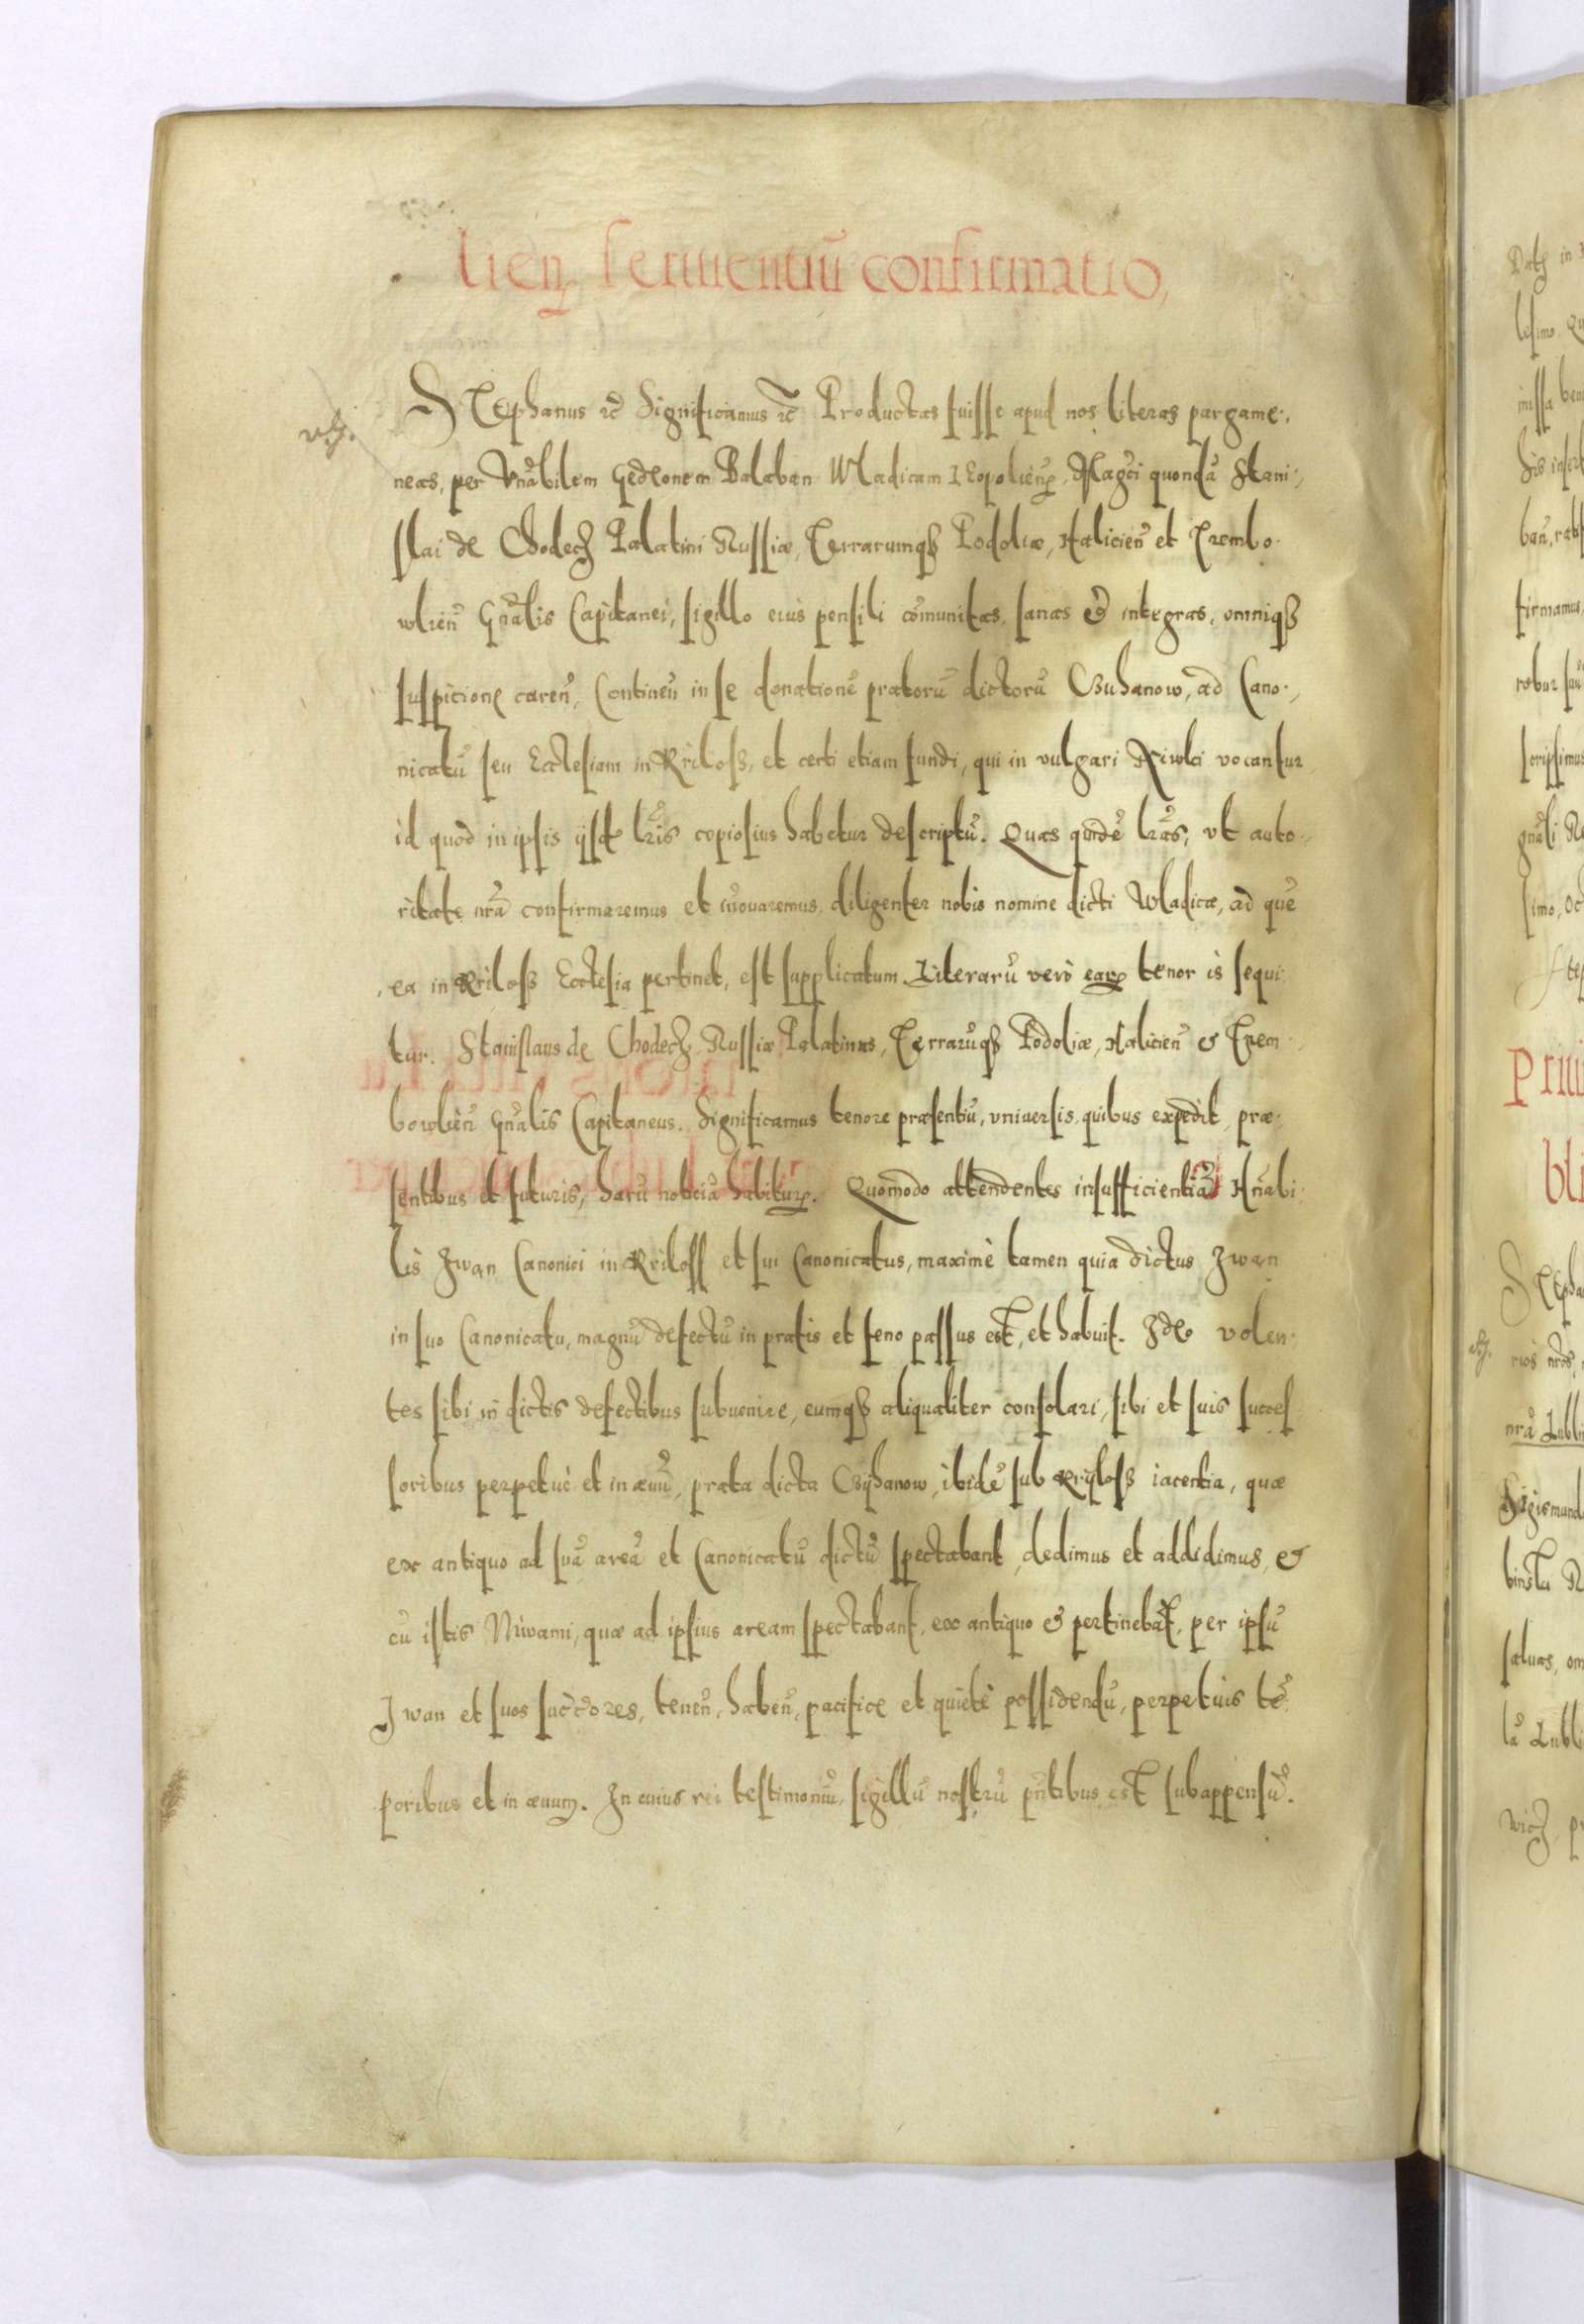 lien seruientiū confirmatio,
Stephanus etc̄ Significamus etc̄ Productas fuisse apud nos literas pargame:
neas, per Vn̄abilem Gedeonem Balaban Wladicam Leopolien̄, Mag̃ci quondā Stani:
slai de Chodecz Palatini Russiæ, Terrarumqȝ Podoliæ, Halicien̄ et Trembo
wlien̄ Gn̄alis Capitanei, sigillo eius pensili cōmunitas, sanas et integras, omniqȝ
suspicione caren̄, Continen̄ in se donationē pratorū dictorū Czuhanow, ad Cano:
nicatū seu Ecclesiam in Kriloß, et certi etiam fundi, qui in vulgari Niwki vocantur
id quod in ipsis ijsdē lr̄is copiosius habetur descriptū. Quas quidē lr̄as, vt auto
ritate nr̄a confirmaremus et inouaremus, diligenter nobis nomine dicti Wladicæ, ad quē
ea in Kriloß Ecclesia pertinet, est supplicatum. Literarū verò earꝝ tenor is sequi
tur. Stanislaus de Chodecz, Russiæ Palatinus, Terrarūqȝ Podoliæ, Halicien̄ et Trem
bowlien̄ Gn̄alis Capitaneus. Significamus tenore præsentiū, vniuersis, quibus expedit, præ
sentibus et futuris, harū noticiā habiturꝝ. Quomodo attendentes insufficientiā Hn̄abi
lis Iwan Canonici in Kriloss et sui Canonicatus, maximè tamen quia dictus Iwan
in suo Canonicatu, magnū defectū in pratis et feno passus est, et habuit. Ideo volen
tes sibi in dictis defectibus subuenire, eumqȝ aliqualiter consolari, sibi et suis succes
soribus perpetuè et in æuū, prata dicta Czyhanow, ibidē sub Kryloß iacentia, quæ
ex antiquo ad suā areā et Canonicatū dictū spectabant, dedimus et addidimus, et
cū istis Niwami, quæ ad ipsius aream spectabant, ex antiquo et pertinebāt, per ipsū
Iwan et suos succ̄ores, tenen̄, haben̄, pacificè et quietè possidendū, perpetuis tē
poribus et in æuum. In cuius rei testimoniū, sigillū nostrū pn̄tibus est subappensū.